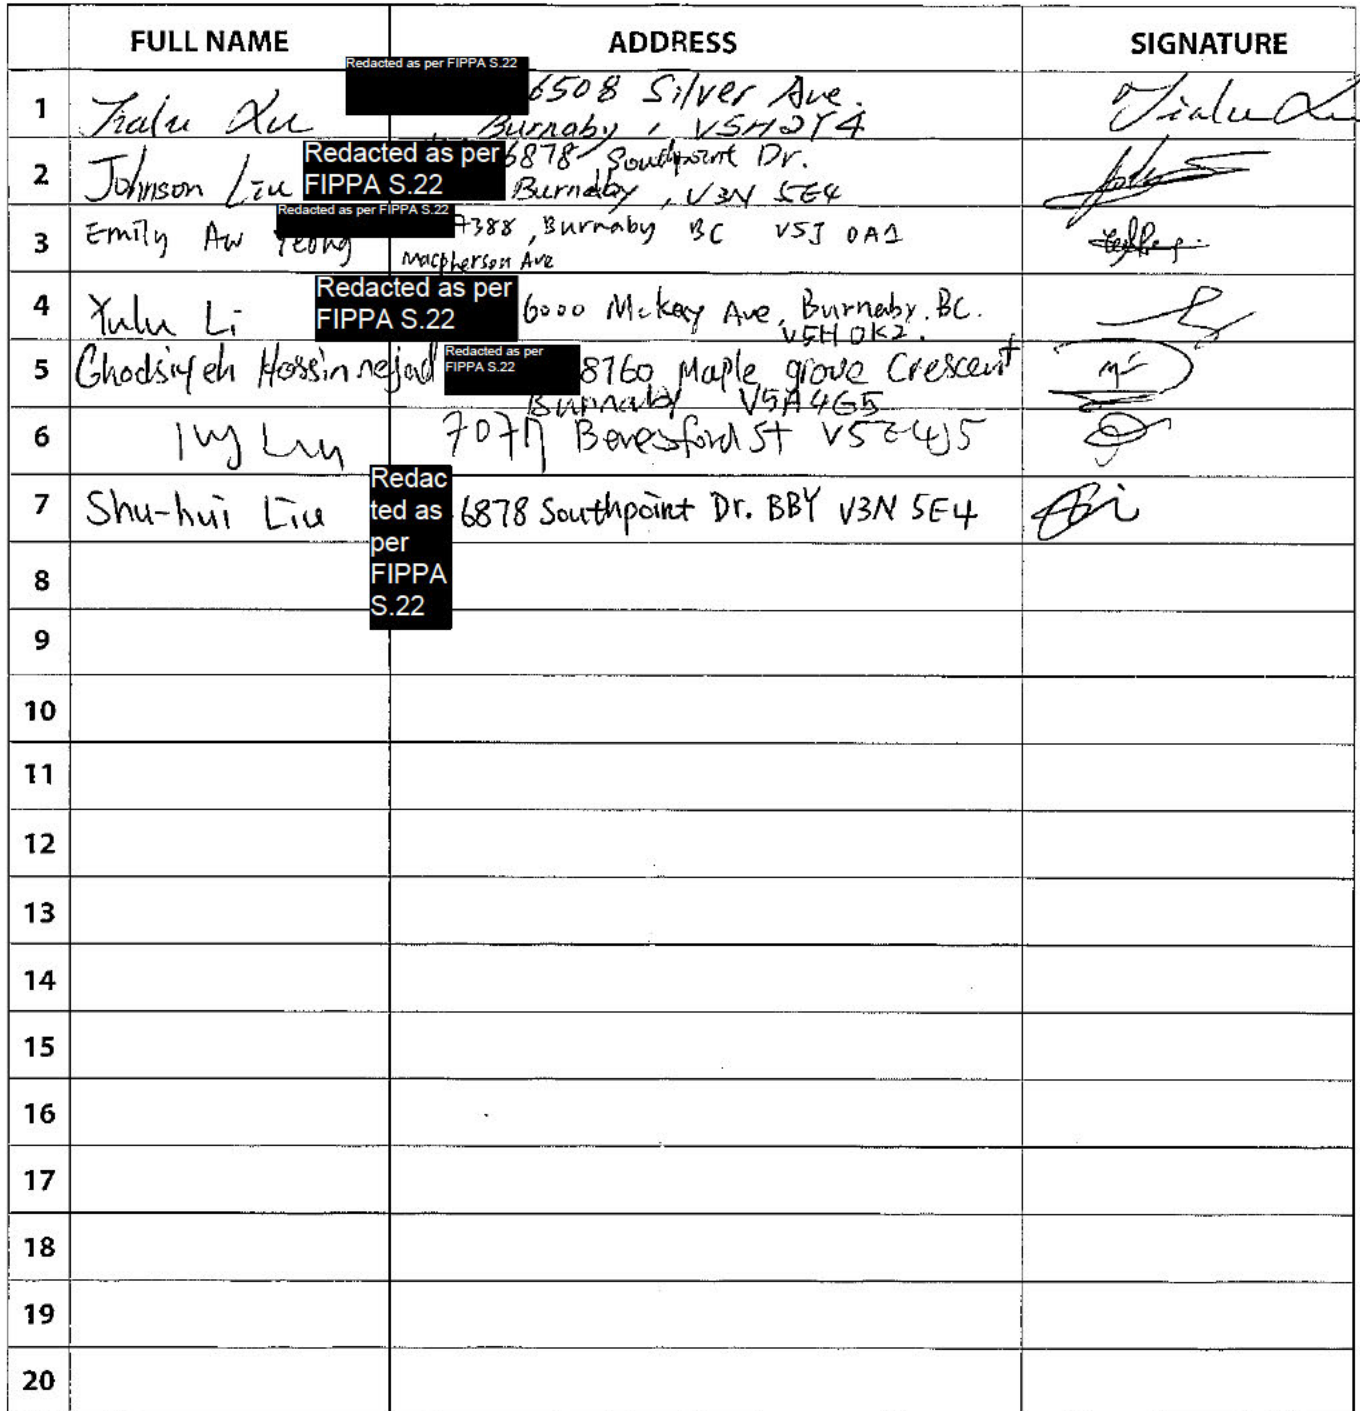 FULL NAME ADDRESS SIGNATURE
Redacted as per FIPPA S.22
1 Xu 6508 Silver Ave.
Burnaby, V5H2Y4
2 Johnson Liu Redacted as per FIPPA S.22 6878 Southpoint Dr.
Burnaby, V3N 5E4
Redacted as per FIPPA S.22
3 Emily Aw Yeong 7388, Burnaby BC V5J 0A1
Macpherson Ave
4 Yulu Li Redacted as per FIPPA S.22 6000 Mckay Ave, Burnaby. BC.
V5H 0K2.
5 Ghodsiyeh Hossinnejad Redacted as per FIPPA S.22 8760 Maple grove Crescent
Burnaby V5A4G5
6 Ivy 7077 Beresford St V5E4J5
7 Shu-hui Liu Redacted as per FIPPA S.22 6878 Southpoint Dr. BBY V3N 5E4
8
9
10
11
12
13
14
15
16
17
18
19
20